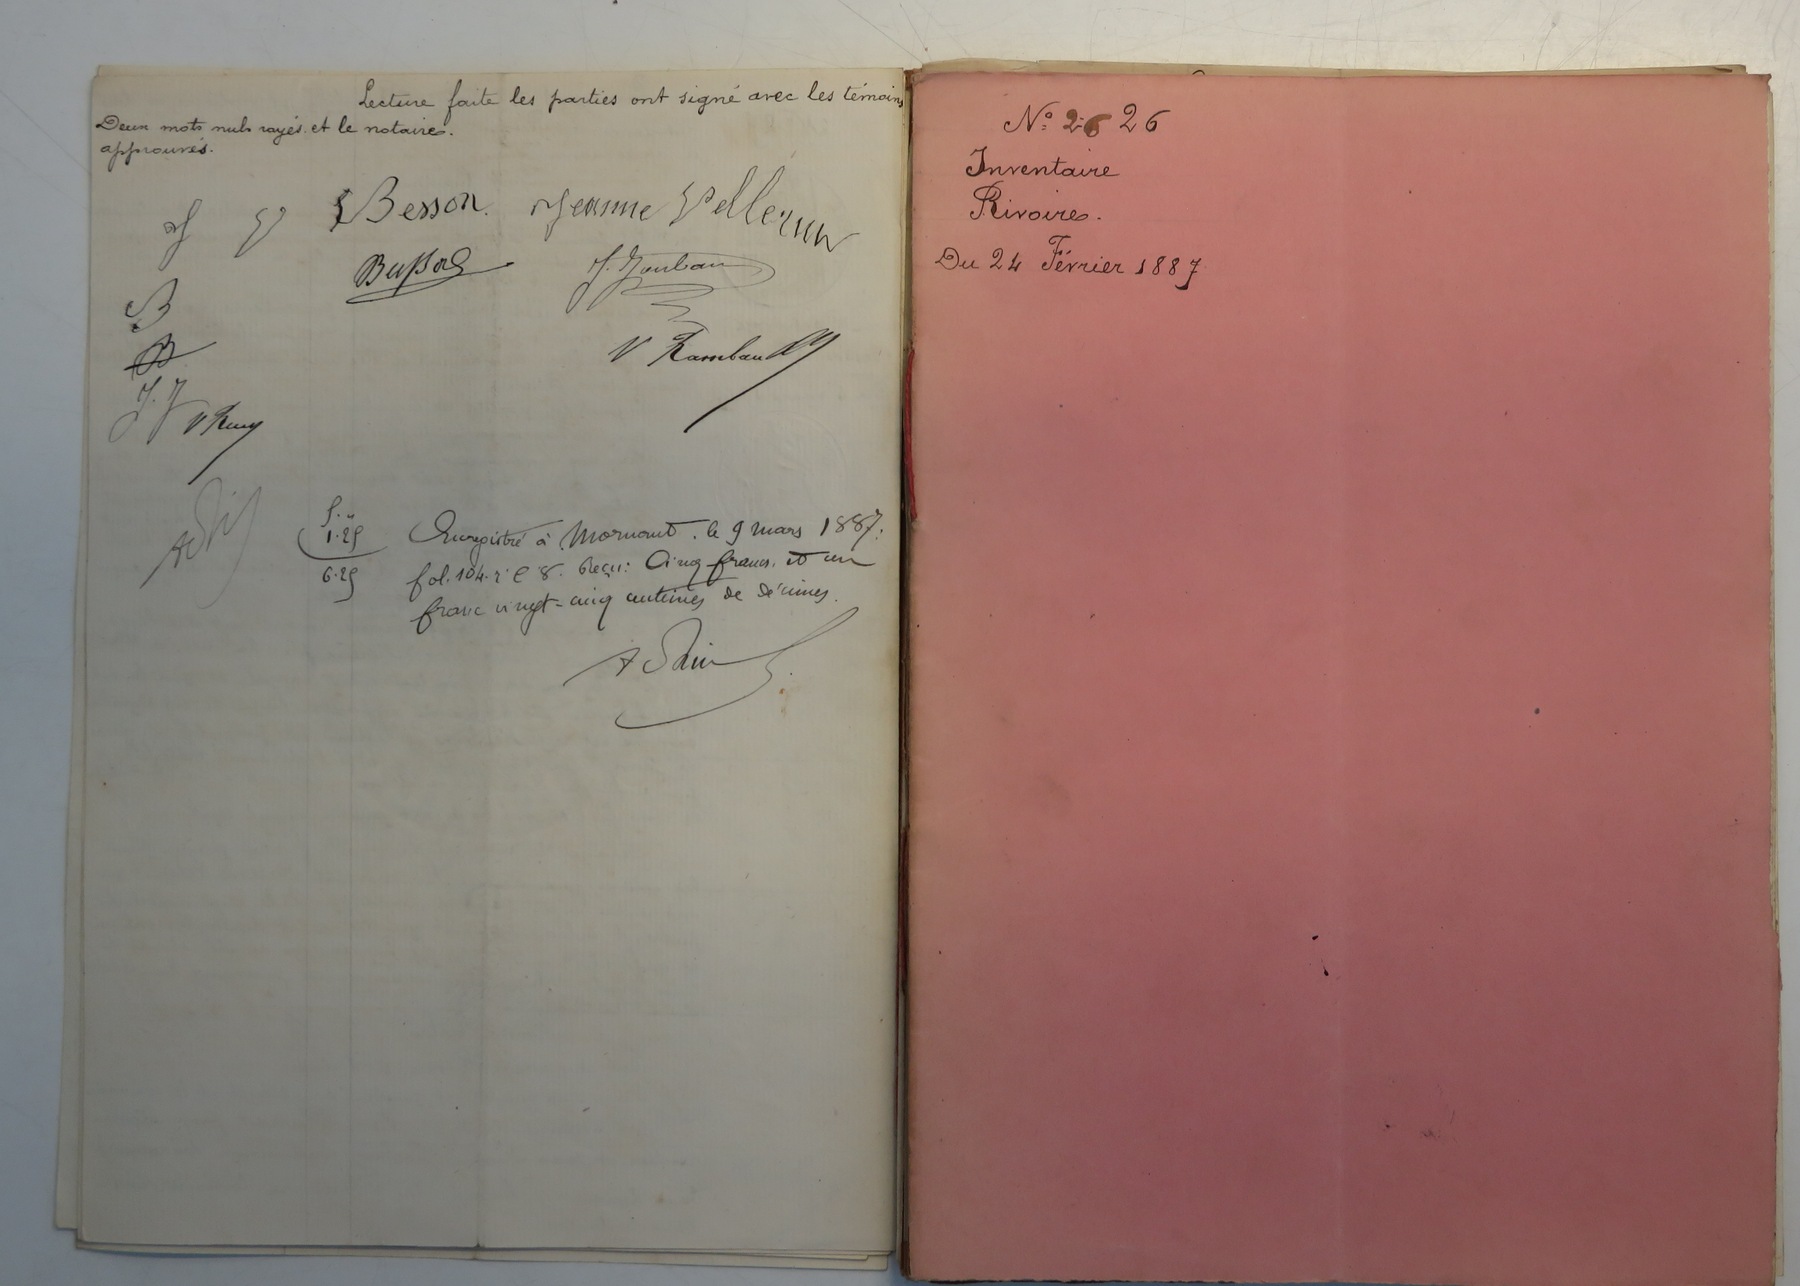 Lecture faite les parties ont signé avec les témoins
et le notaire.
Deux mots nuls rayés
approuvés.
J
Besson Jeanne
B
B
J. J
V Rambaud
5. "
1.25
6.25
Enregistré à Mornant. le 9 mars 1887.
fol. 104. r° C 8. Reçu: Cinq francs, et un
franc vingt-cinq centimes de décimes.
N° 26 26
Inventaire
Rivoire.
Du 24 Février 1887